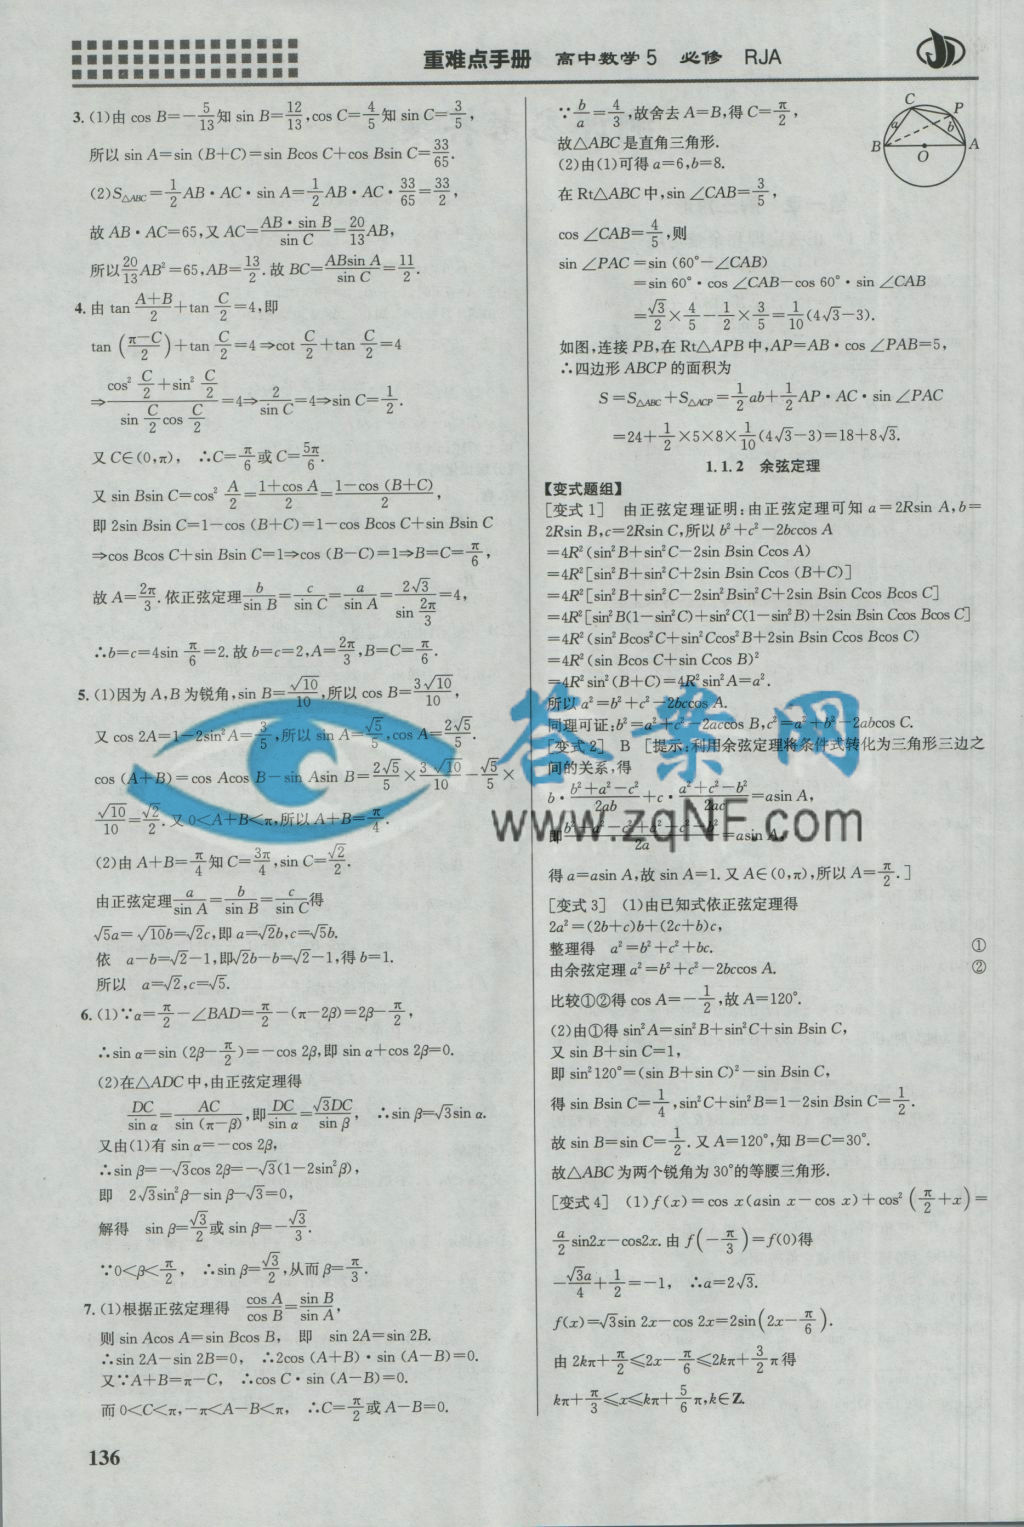 重难点手册 高中数学5 必修 RJA
3. (1)由 cos B=-5/13知 sin B=12/13,cos C=4/5知 sin C=3/5,
所以 sin A=sin (B+C)=sin Bcos C+cos Bsin C=33/65.
(2)S△ABC=1/2AB·AC·sin A=1/2AB·AC·33/65=33/2,
故 AB·AC=65,又 AC=AB·sin B/sin C=20/13AB,
所以20/13AB²=65,AB=13/2.故 BC=ABsin A/sin C=11/2.
4. 由 tan (A+B)/2+tan C/2=4,即
tan ((π-C)/2)+tan C/2=4⇒cot C/2+tan C/2=4
⇒(cos² C/2+sin² C/2)/(sin C/2 cos C/2)=4⇒2/sin C=4⇒sin C=1/2.
又 C∈(0,π), ∴C=π/6或 C=5π/6.
又 sin Bsin C=cos² A/2=(1+cos A)/2=(1-cos (B+C))/2,
即 2sin Bsin C=1-cos (B+C)=1-cos Bcos C+sin Bsin C
⇒cos Bcos C+sin Bsin C=1⇒cos (B-C)=1⇒B=C=π/6,
故 A=2π/3.依正弦定理b/sin B=c/sin C=a/sin A=2√3/sin 2π/3=4,
∴b=c=4sin π/6=2.故 b=c=2,A=2π/3,B=C=π/6.
5. (1)因为 A,B 为锐角,sin B=√10/10,所以 cos B=3√10/10,
又 cos 2A=1-2sin²A=3/5,所以 sin A=√5/5,cos A=2√5/5.
cos (A+B)=cos Acos B-sin Asin B=2√5/5×3√10/10-√5/5×
√10/10=√2/2.又 0<A+B<π,所以 A+B=π/4.
(2)由 A+B=π/4知 C=3π/4,sin C=√2/2.
由正弦定理a/sin A=b/sin B=c/sin C得
√5a=√10b=√2c,即 a=√2b,c=√5b.
依 a-b=√2-1,即√2b-b=√2-1,得 b=1.
所以 a=√2,c=√5.
6. (1)∵α=π/2-∠BAD=π/2-(π-2β)=2β-π/2,
∴sin α=sin (2β-π/2)=-cos 2β,即 sin α+cos 2β=0.
(2)在△ADC 中,由正弦定理得
DC/sin α=AC/sin (π-β),即DC/sin α=√3DC/sin β, ∴sin β=√3sin α.
又由(1)有 sin α=-cos 2β,
∴sin β=-√3cos 2β=-√3(1-2sin²β),
即 2√3sin²β-sin β-√3=0,
解得 sin β=√3/2或 sin β=-√3/3.
∵0<β<π/2, ∴sin β=√3/2,从而 β=π/3.
7. (1)根据正弦定理得 cos A/cos B=sin B/sin A,
则 sin Acos A=sin Bcos B, 即 sin 2A=sin 2B.
∴sin 2A-sin 2B=0, ∴2cos (A+B)·sin (A-B)=0.
又∵A+B=π-C, ∴cos C·sin (A-B)=0.
而 0<C<π,-π<A-B<π, ∴C=π/2或 A-B=0.
136
∵b/a=4/3,故舍去 A=B,得 C=π/2,
故△ABC 是直角三角形.
(2)由(1)可得 a=6,b=8.
在 Rt△ABC 中,sin ∠CAB=3/5,
cos ∠CAB=4/5,则
sin ∠PAC=sin (60°-∠CAB)
=sin 60°·cos ∠CAB-cos 60°·sin ∠CAB
=√3/2×4/5-1/2×3/5=1/10(4√3-3).
如图,连接 PB,在 Rt△APB 中,AP=AB·cos ∠PAB=5,
∴四边形 ABCP 的面积为
S=S△ABC+S△ACP=1/2ab+1/2AP·AC·sin ∠PAC
=24+1/2×5×8×1/10(4√3-3)=18+8√3.
C
P
a
b
B
O
A
1.1.2 余弦定理
【变式题组】
[变式 1] 由正弦定理证明:由正弦定理可知 a=2Rsin A,b=
2Rsin B,c=2Rsin C,所以 b²+c²-2bccos A
=4R²(sin²B+sin²C-2sin Bsin Ccos A)
=4R²[sin²B+sin²C+2sin Bsin Ccos (B+C)]
=4R²[sin²B+sin²C-2sin²Bsin²C+2sin Bsin Ccos Bcos C]
=4R²[sin²B(1-sin²C)+sin²C(1-sin²B)+2sin Bsin Ccos Bcos C]
=4R²(sin²Bcos²C+sin²Ccos²B+2sin Bsin Ccos Bcos C)
=4R²(sin Bcos C+sin Ccos B)²
=4R²sin²(B+C)=4R²sin²A=a².
所以 a²=b²+c²-2bccos A.
同理可证:b²=a²+c²-2accos B,c²=a²+b²-2abcos C.
[变式 2] B [提示:利用余弦定理将条件式转化为三角形三边之
间的关系,得
b·(b²+a²-c²)/2ab+c·(a²+c²-b²)/2ac=asin A,
即(b²+a²-c²+a²+c²-b²)/2a=asin A,
得 a=asin A,故 sin A=1.又 A∈(0,π),所以 A=π/2.]
[变式 3] (1)由已知式依正弦定理得
2a²=(2b+c)b+(2c+b)c,
整理得 a²=b²+c²+bc. ①
由余弦定理 a²=b²+c²-2bccos A. ②
比较①②得 cos A=-1/2,故 A=120°.
(2)由①得 sin²A=sin²B+sin²C+sin Bsin C,
又 sin B+sin C=1,
即 sin²120°=(sin B+sin C)²-sin Bsin C,
得 sin Bsin C=1/4,sin²C+sin²B=1-2sin Bsin C=1/2.
故 sin B=sin C=1/2.又 A=120°,知 B=C=30°.
故△ABC 为两个锐角为 30°的等腰三角形.
[变式 4] (1)f(x)=cos x(asin x-cos x)+cos²(π/2+x)=
a/2sin2x-cos2x.由 f(-π/3)=f(0)得
-√3a/4+1/2=-1, ∴a=2√3.
f(x)=√3sin 2x-cos 2x=2sin(2x-π/6).
由 2kπ+π/2≤2x-π/6≤2kπ+3/2π得
kπ+π/3≤x≤kπ+5/6π,k∈Z.
答案网
www.zqNF.com